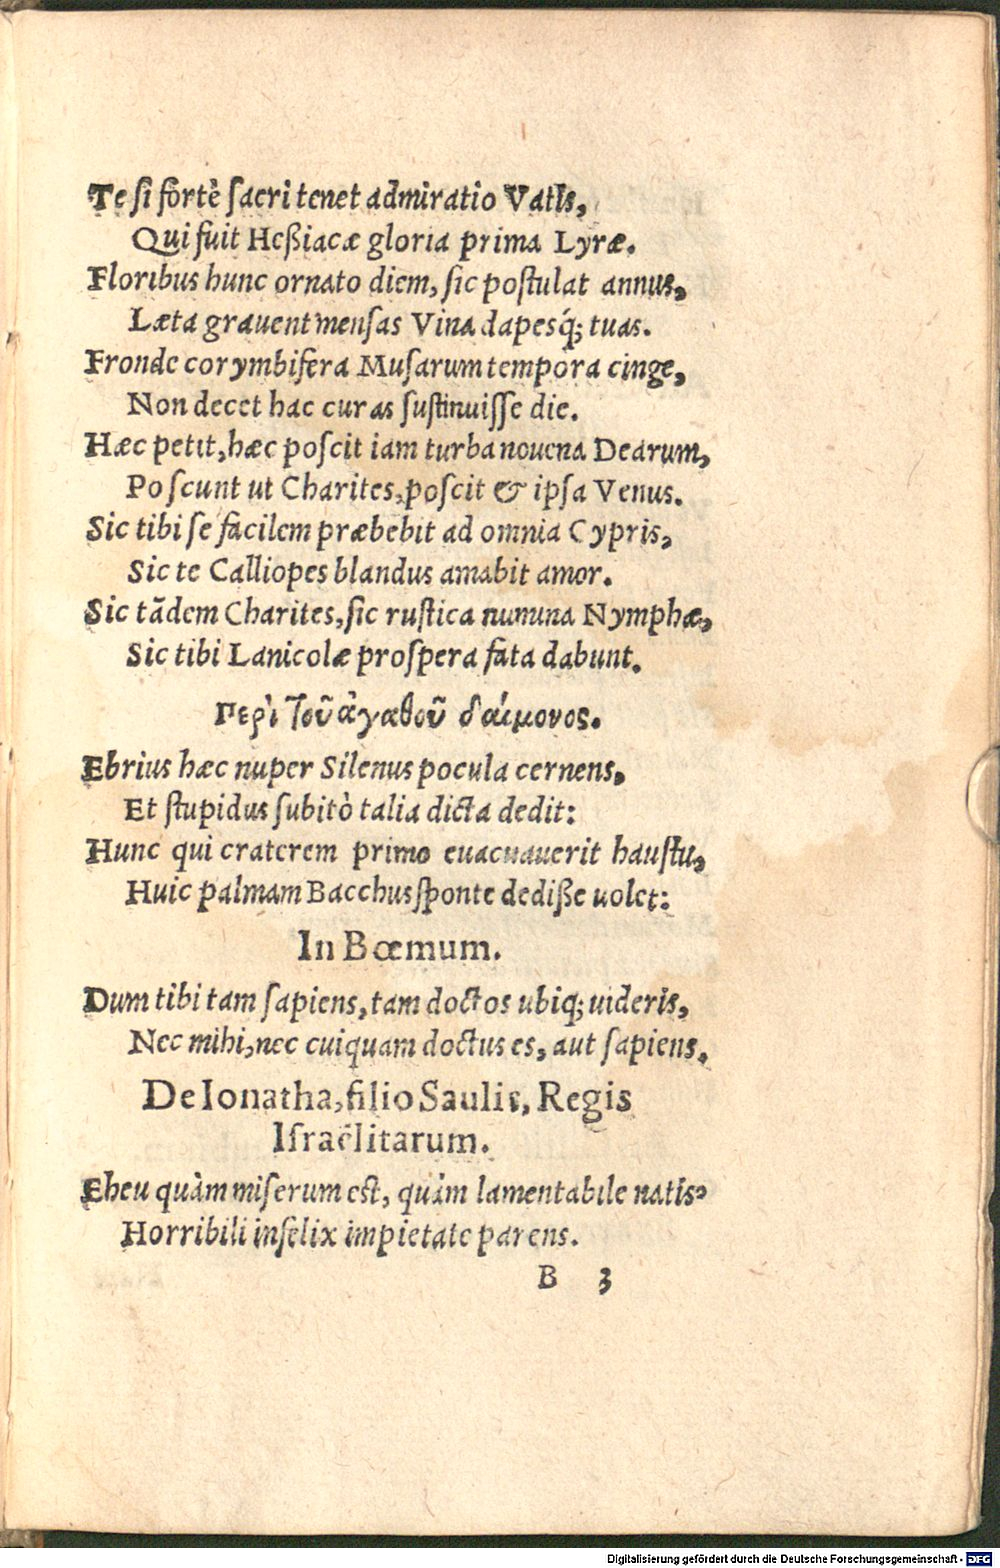 Te si fortè ſacri tenet admiratio Vatis,
Qui fuit Heßiacæ gloria prima Lyræ.
Floribus hunc ornato diem, ſic poſtulat annus,
Læta grauent menſas Vina dapesq́; tuas.
Fronde corymbifera Muſarum tempora cinge,
Non decet hac curas ſuſtinuiſſe die.
Hæc petit, hæc poſcit iam turba nouena Dearum,
Poſcunt ut Charites, poſcit & ipſa Venus.
Sic tibi ſe facilem præbebit ad omnia Cypris,
Sic te Calliopes blandus amabit amor.
Sic tãdem Charites, ſic ruſtica numina Nymphæ,
Sic tibi Lanicolæ proſpera fata dabunt.
Περὶ τοῦ ἀγαθοῦ δαίμονος.
Ebrius hæc nuper Silenus pocula cernens,
Et ſtupidus ſubitò talia dicta dedit:
Hunc qui craterem primo euacuauerit hauſtu,
Huic palmam Bacchus ſponte dediße uolet:
In Bœmum.
Dum tibi tam ſapiens, tam doctos ubiq; uideris,
Nec mihi, nec cuiquam doctus es, aut ſapiens.
De Ionatha, filio Saulis, Regis
Iſraëlitarum.
Eheu quàm miſerum eſt, quàm lamentabile natis
Horribili infelix impietate parens.
B 3
Digitalisierung gefördert durch die Deutsche Forschungsgemeinschaft - DFG